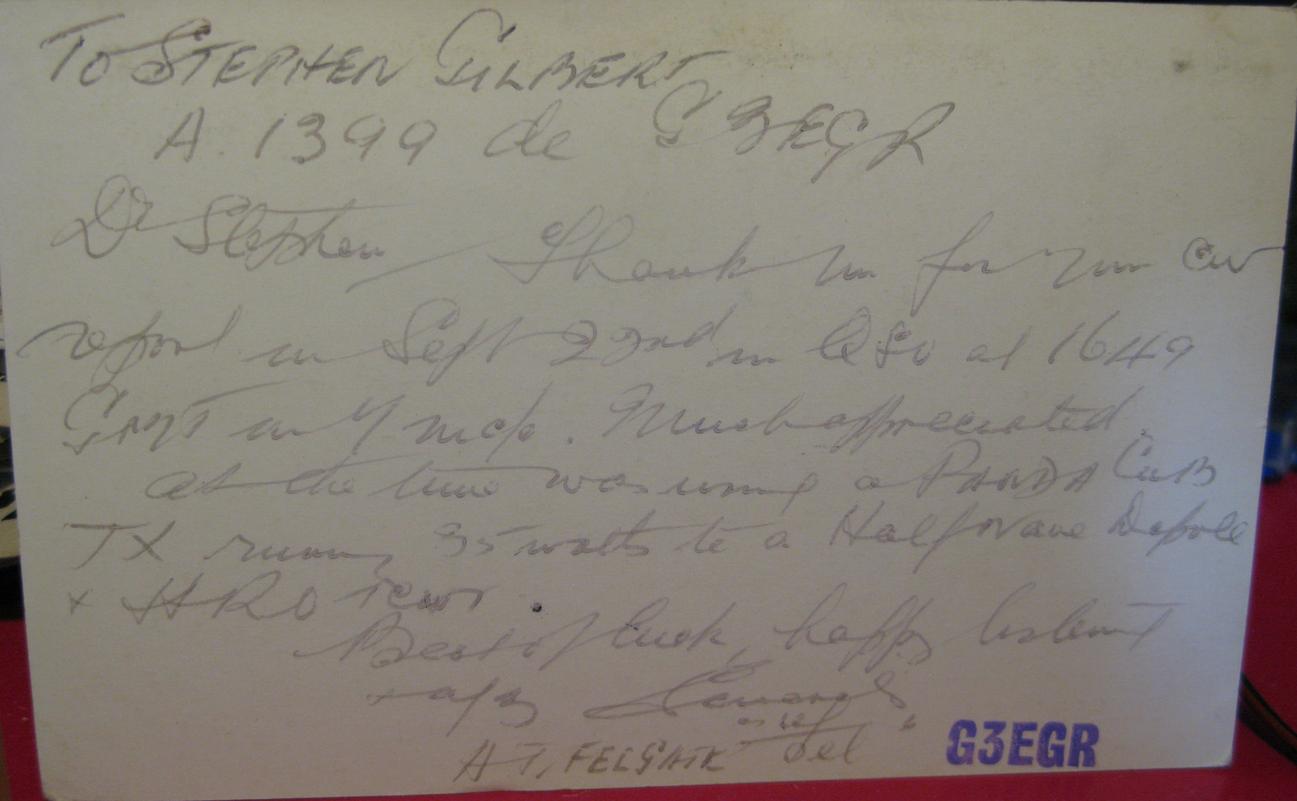 To STEPHEN GILBERT
A. 1399 de G3EGR
Dr Stephen Thank you for your CW
report on Sept 22nd in QSO at 1649
GMT on 7 mc/s. Much appreciated.
at the time was using a PANDA CUB
TX running 35 watts to a Half Wave Dipole
+ HRO rcvr.
Best of luck, happy listening
A T. FELGATE G3EGR